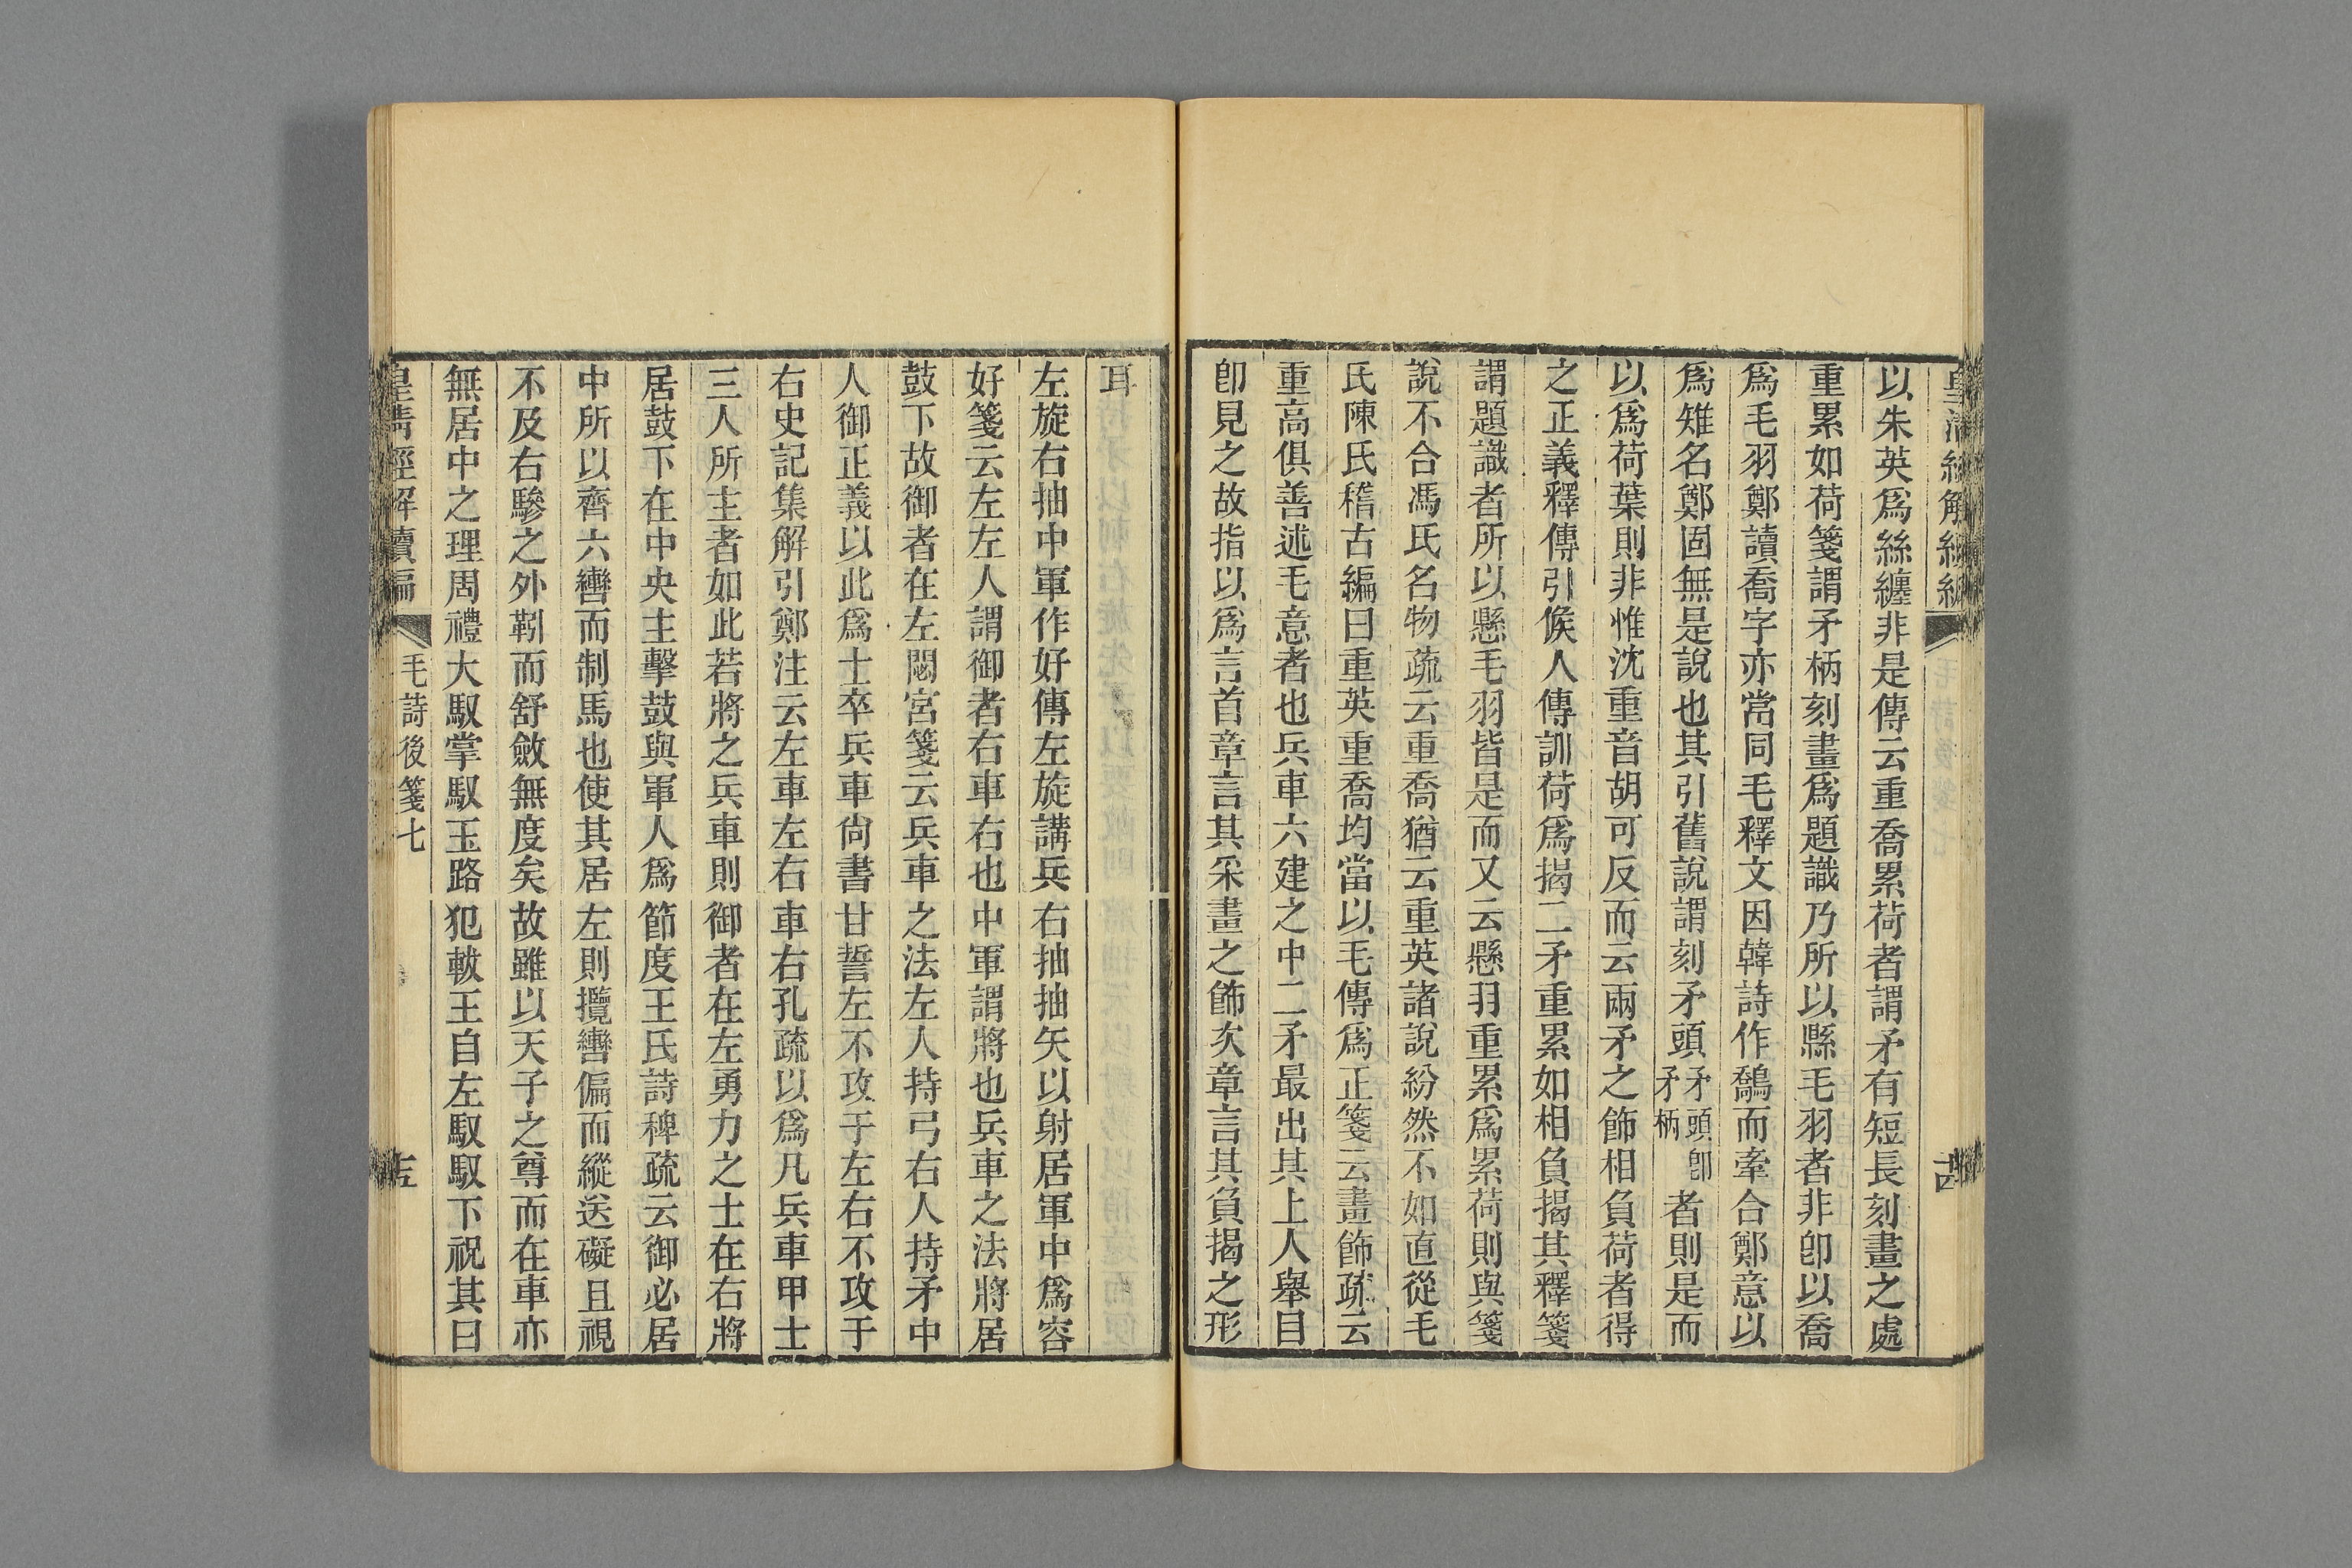 以朱英爲絲纏非是傳云重喬累荷者謂矛有短長刻畫之處
重累如荷箋謂矛柄刻畫爲題識乃所以縣毛羽者非卽以喬
爲毛羽鄭讀喬字亦當同毛釋文因韓詩作鷮而牽合鄭意以
爲雉名鄭固無是說也其引舊說謂刻矛頭矛頭卽矛柄者則是而
以爲荷葉則非惟沈重音胡可反而云兩矛之飾相負荷者得
之正義釋傳引候人傳訓荷爲揭二矛重累如相負揭其釋箋
謂題識者所以懸毛羽皆是而又云懸羽重累爲累荷則與箋
說不合馮氏名物疏云重喬猶云重英諸說紛然不如直從毛
氏陳氏稽古編曰重英重喬均當以毛傳爲正箋云畫飾疏云
重高俱善述毛意者也兵車六建之中二矛最出其上人舉目
卽見之故指以爲言首章言其采畫之飾次章言其負揭之形
耳
左旋右抽中軍作好傳左旋講兵右抽抽矢以射居軍中爲容
好箋云左左人謂御者右車右也中軍謂將也兵車之法將居
鼓下故御者在左閟宮箋云兵車之法左人持弓右人持矛中
人御正義以此爲士卒兵車尙書甘誓左不攻于左右不攻于
右史記集解引鄭注云左車左右車右孔疏以爲凡兵車甲士
三人所主者如此若將之兵車則御者在左勇力之士在右將
居鼓下在中央主擊鼓與軍人爲節度王氏詩稗疏云御必居
中所以齊六轡而制馬也使其居左則攬轡偏而縱送礙且視
不及右驂之外靷而舒斂無度矣故雖以天子之尊而在車亦
無居中之理周禮大馭掌馭玉路犯軷王自左馭馭下祝其曰
皇淸經解續編
毛詩後箋七